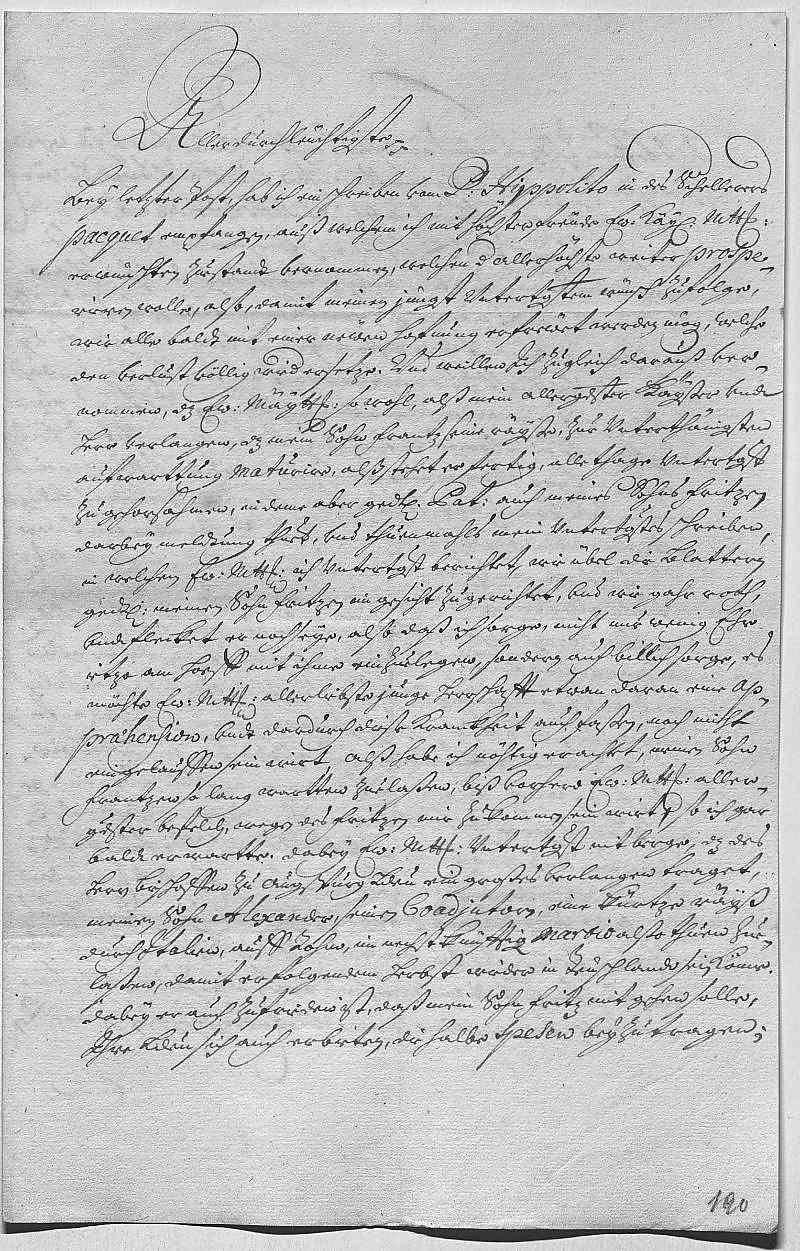 Allerdurchleüchtigste
Bey letzter Post, hab ich ein schreiben vom P: Hyppolito in des Schellerers
pacquet empfangen, auß welchem ich mit höchster freüde Ew: Kay: Mtt:
erwünschten zuestandt vernommen, welchen d allerhöchste weiter prospe-
riren wolle, also, damit meinem jüngst Untertgstem wünsch zufolge,
wir alle baldt mit einer newen hoffnung erfrewet werden mög, welche
den verlust völlig wider ersetze. Und weillen Ich zugleich darauß ver-
nommen, dz Ew: Mäytt: sowohl, alß mein allergdster Kayser und
Herr verlangen, dz mein Sohn Frantz seine räyse, zur Unterthänigsten
aufwarttung maturire, alß stehet er fertig, alle thage Untertgst
zu gehorsahmen, in deme aber gedh: Pat: auch meines Sohns Fritzen
darbey meldung thuet, und thuenmahls mein Untertgstes schreiben,
in welchem Ew: Mtt: ich Untertgst berichtet, wie übel die Blattern
gedh: meinen Sohn Fritzen im gesicht zugerichtet, und wie gahr roth,
und flecket er noch seye, also daß ich sorge, nicht nur wenig Ehr
ietzo am hoff mit ihme einzulegen, sondern auch billich sorge, es
möchte Ew: Mtt: allerliebste junge herrschafft etwan daran eine Ap-
præhension, und dardurch diese Kranckheit auch faßen, noch nicht
eingelauffen sein wirt, alß habe ich nöhtig erachtet, meinen Sohn
Frantzen so lang wartten zulaßen, biß vorhero Ew: Mtt: aller-
gdster befelch, wegen des Fritzen mir zukommen sein wirt, so ich gar
baldt erwartte. dabey Ew: Mtt: Untertgst nit berge, dz des
Herr bischoffen zu Augspurg Lden ein großes verlangen traget,
meinen Sohn Alexander, seinen Coadjutorn, eine kurtze räyß
durch Italien, auff Rohm, im nechst künfftig Martio also thuen zue-
laßen, damit er folgendem herbst wieder in Teüschlandt sein köne.
dabey er auch zufrieden ist, daß mein Sohn Fritz mit gehen solle,
Ihre Lden sich auch erbieten, die halbe spesen beyzutragen;
190